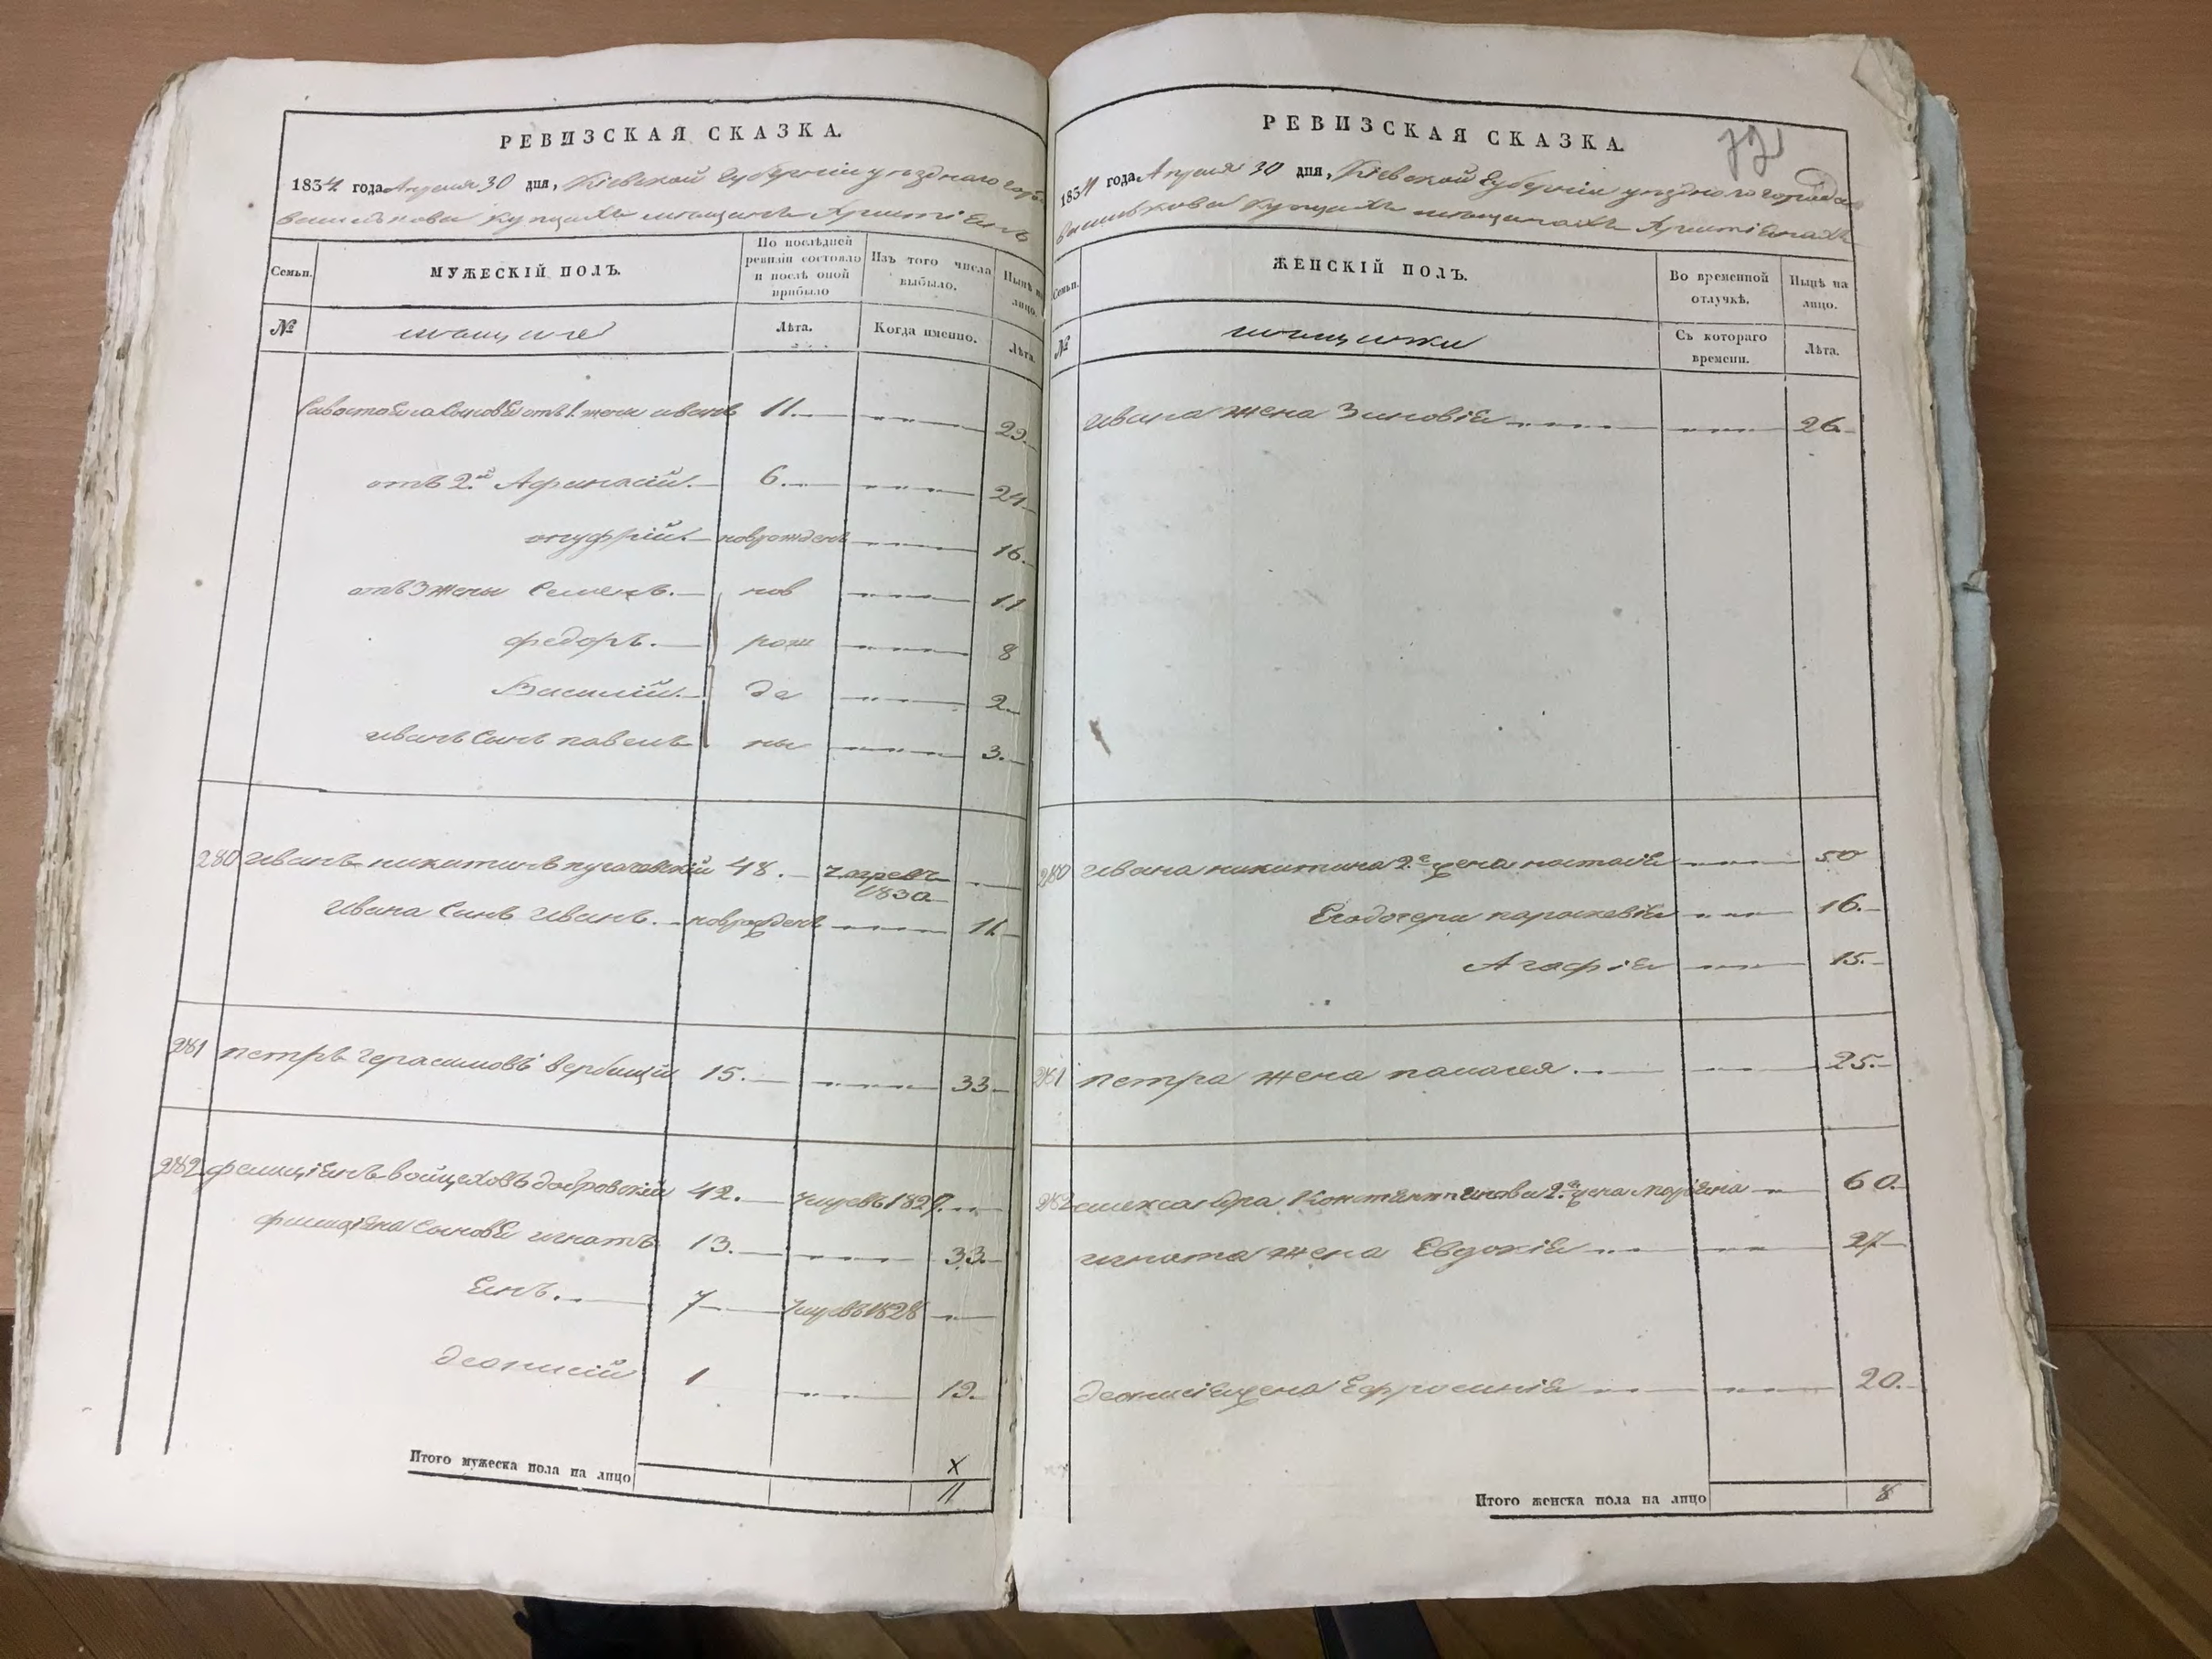 РЕВИЗСКАЯ СКАЗКА.
1834 года Апреля 30 дня, Кіевской Губерніи уезднаго
василькова купцахъ мещанъ Христіянъ
Семьи. МУЖЕСКІЙ ПОЛЪ. По послѣдней ревизіи состояло и послѣ оной прибыло Изъ того числа выбыло. Нынѣ на лицо.
№ мещане Лѣта. Когда именно. Лѣта.
сыновья отъ 1 жены иванъ 11. 29.
отъ 2й Афанасій. 6. 24
онуфрій. новрожденъ 16.
отъ 3 жены Семенъ. нов 11
федоръ. рож 8
Василій. де 2
ивана Сынъ павелъ ны 3.
280 иванъ никитинъ 48. 1830
Ивана Сынъ Иванъ. новрожденъ 11
281 петръ Герасимовъ вербицкій 15. 33
282 фелиціянъ войцеховъ домбровскій 42. 1827.
фелиціяна Сыновья игнатъ 13. 33.
Янъ. 7 1828
деонисій 1 19.
Итого мужеска пола на лицо X
11
РЕВИЗСКАЯ СКАЗКА.
1834 года Апреля 30 дня, Кіевской Губерніи уезднаго города
василькова купцахъ мещанахъ Христіянахъ
Семьи. ЖЕНСКІЙ ПОЛЪ. Во временной отлучкѣ. Нынѣ на лицо.
№ мещанки Съ котораго времени. Лѣта.
ивана жена Зиновія 26.
280 ивана никитина 2я жена настасія 50
Его дочери параскевія 16.
Агафія 15.
281 петра жена 25.
282 Константинова 2я жена маріяна 60.
игната жена Евдокія 27
деонисія жена Ефросинія 20.
Итого женска пола на лицо 8